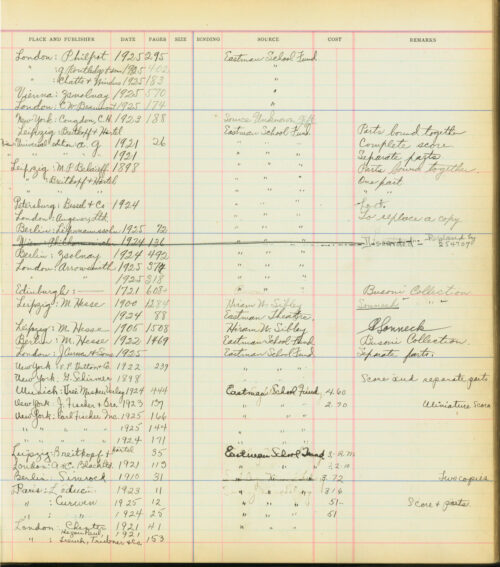 PLACE AND PUBLISHER DATE PAGES SIZE BINDING SOURCE COST REMARKS
London: Philpot 1925 295 Eastman School Fund
" : G Routledge & son 1925 402 "
" : Chatto & Windus 1925 183 "
Vienna: Zsolnay 1925 570 "
London: C.W. Beaumont 1925 174 "
New York: Congdon, C.H. 1923 188 Source Unknown Gift
Leipzig: Breitkopf & Härtel Eastman School Fund Parts bound together
Universal edition a g 1921 26 " " " Complete score
" 1921 " " " Separate parts
Leipzig: M.P. Belaieff 1898 " " " Parts bound together
" Breitkopf & Härtel " " " One part
" " " " " "
Petersburg: Bessel & Co 1924 " " "
London: Augener Ltd. " " " To replace a copy
Berlin: Lehnmanssohn 1925 72 " " "
Wien: Philharmonischer 1924 136 " " " Discarded - Replaced by 254707
Berlin: Zsolnay 1924 492 " " "
London: Arrowsmith 1925 374 " " "
1925 318 " " "
Edinburgh: 1721 608 " " " Busoni Collection
Leipzig: M. Hesse 1900 1284 Hiram W. Sibley Sonneck " "
" 1924 88 Eastman Theatre
Leipzig: M. Hesse 1905 1508 Hiram W. Sibley Sonneck
Berlin: M. Hesse 1922 1469 Eastman School Fund Busoni Collection
London: J Curwen & Sons 1925 Eastman School Fund Separate parts.
New York: E P Dutton & Co. 1922 239 " " "
New York: G. Schirmer 1898 " " Score and separate parts
Munich: Drei Masken Verlag 1924 444 Eastman School Fund 4.60
New York: J. Fischer & Bro 1923 137 " " 2.70 Miniature Score
New York: Carl Fischer Inc. 1925 166 " " "
" " " " 1925 144 " " "
" " " " 1924 171 " "
Leipzig: Breitkopf & Härtel 35 Eastman School Fund
London: A & C. Black Ltd. 1921 113 " "
Berlin: Simrock 1910 31 3.72 Two copies
Paris: Leduc 1923 11
" : Curwen 1925 12 " " " 51 Score & parts
" : " 1924 25 " " " 51
London: Chester 1921 41 " " "
" Kegan Paul, 1921
" Trench, Trubner & Co. 153 " " "